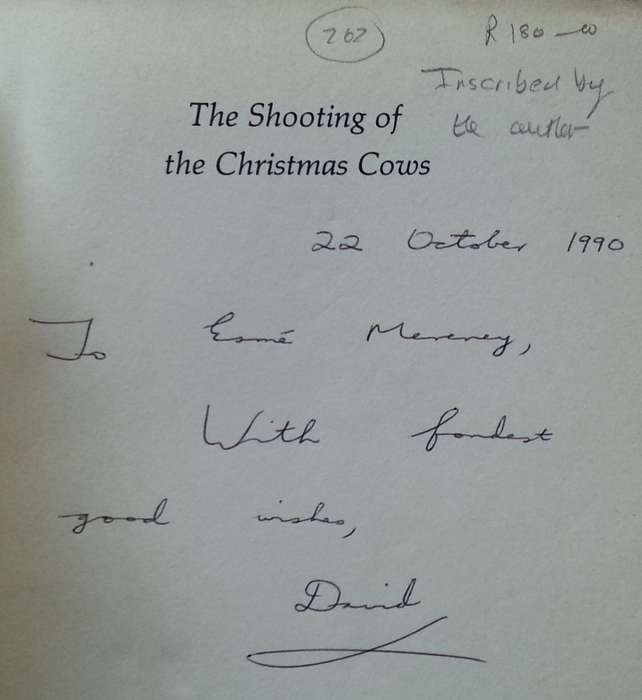 262
R 180-00
Inscribed by
the author
The Shooting of
the Christmas Cows
22 October 1990
To Esmé Mereney,
With fondest
good wishes,
David